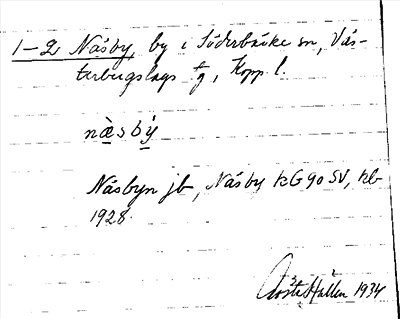 1-2 Näsby, by i Söderbärke sn, Väs-
terbergslags tg, Kopp. l.
næ̀sbý
Näsbyn jb, Näsby kG 90 SV, kb
1928.
Gösta Hallen 1934